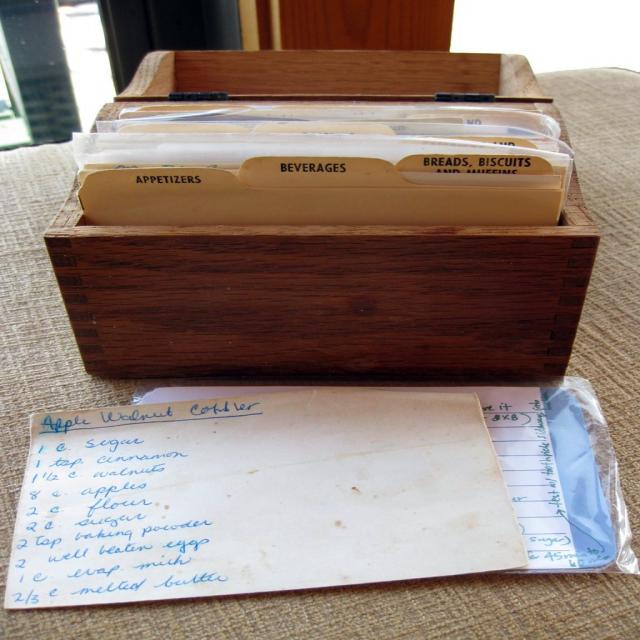 NO
AND
APPETIZERS
BEVERAGES
BREADS, BISCUITS
AND MUFFINS
Apple Walnut Cobbler
1 c. sugar
1 tsp cinnamon
1 1/2 c. walnuts
8 c. apples
2 c flour
2 c. sugar
2 tsp baking powder
2 well beaten eggs
1 c. evap. milk
2/3 c melted butter
it
8X8)
45 min